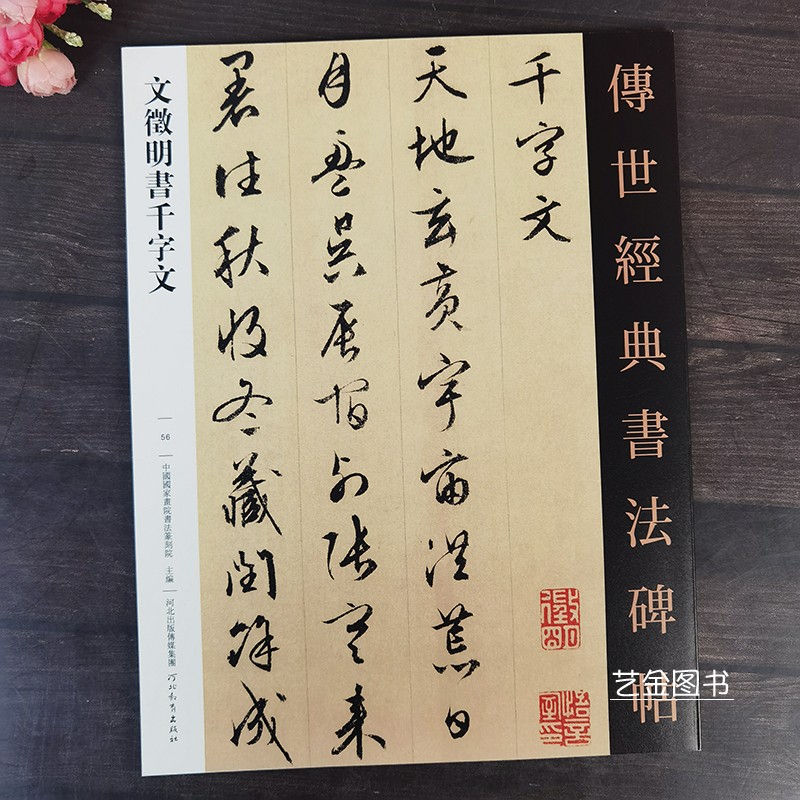 傳世經典書法碑帖
千字文
天地玄黃宇宙洪荒日
月盈昃辰宿列張寒來
暑往秋收冬藏閏餘成
徵明
悟言室印
文徵明書千字文
56
中國國家畫院書法篆刻院 主編
河北出版傳媒集團
河北教育出版社
艺金图书